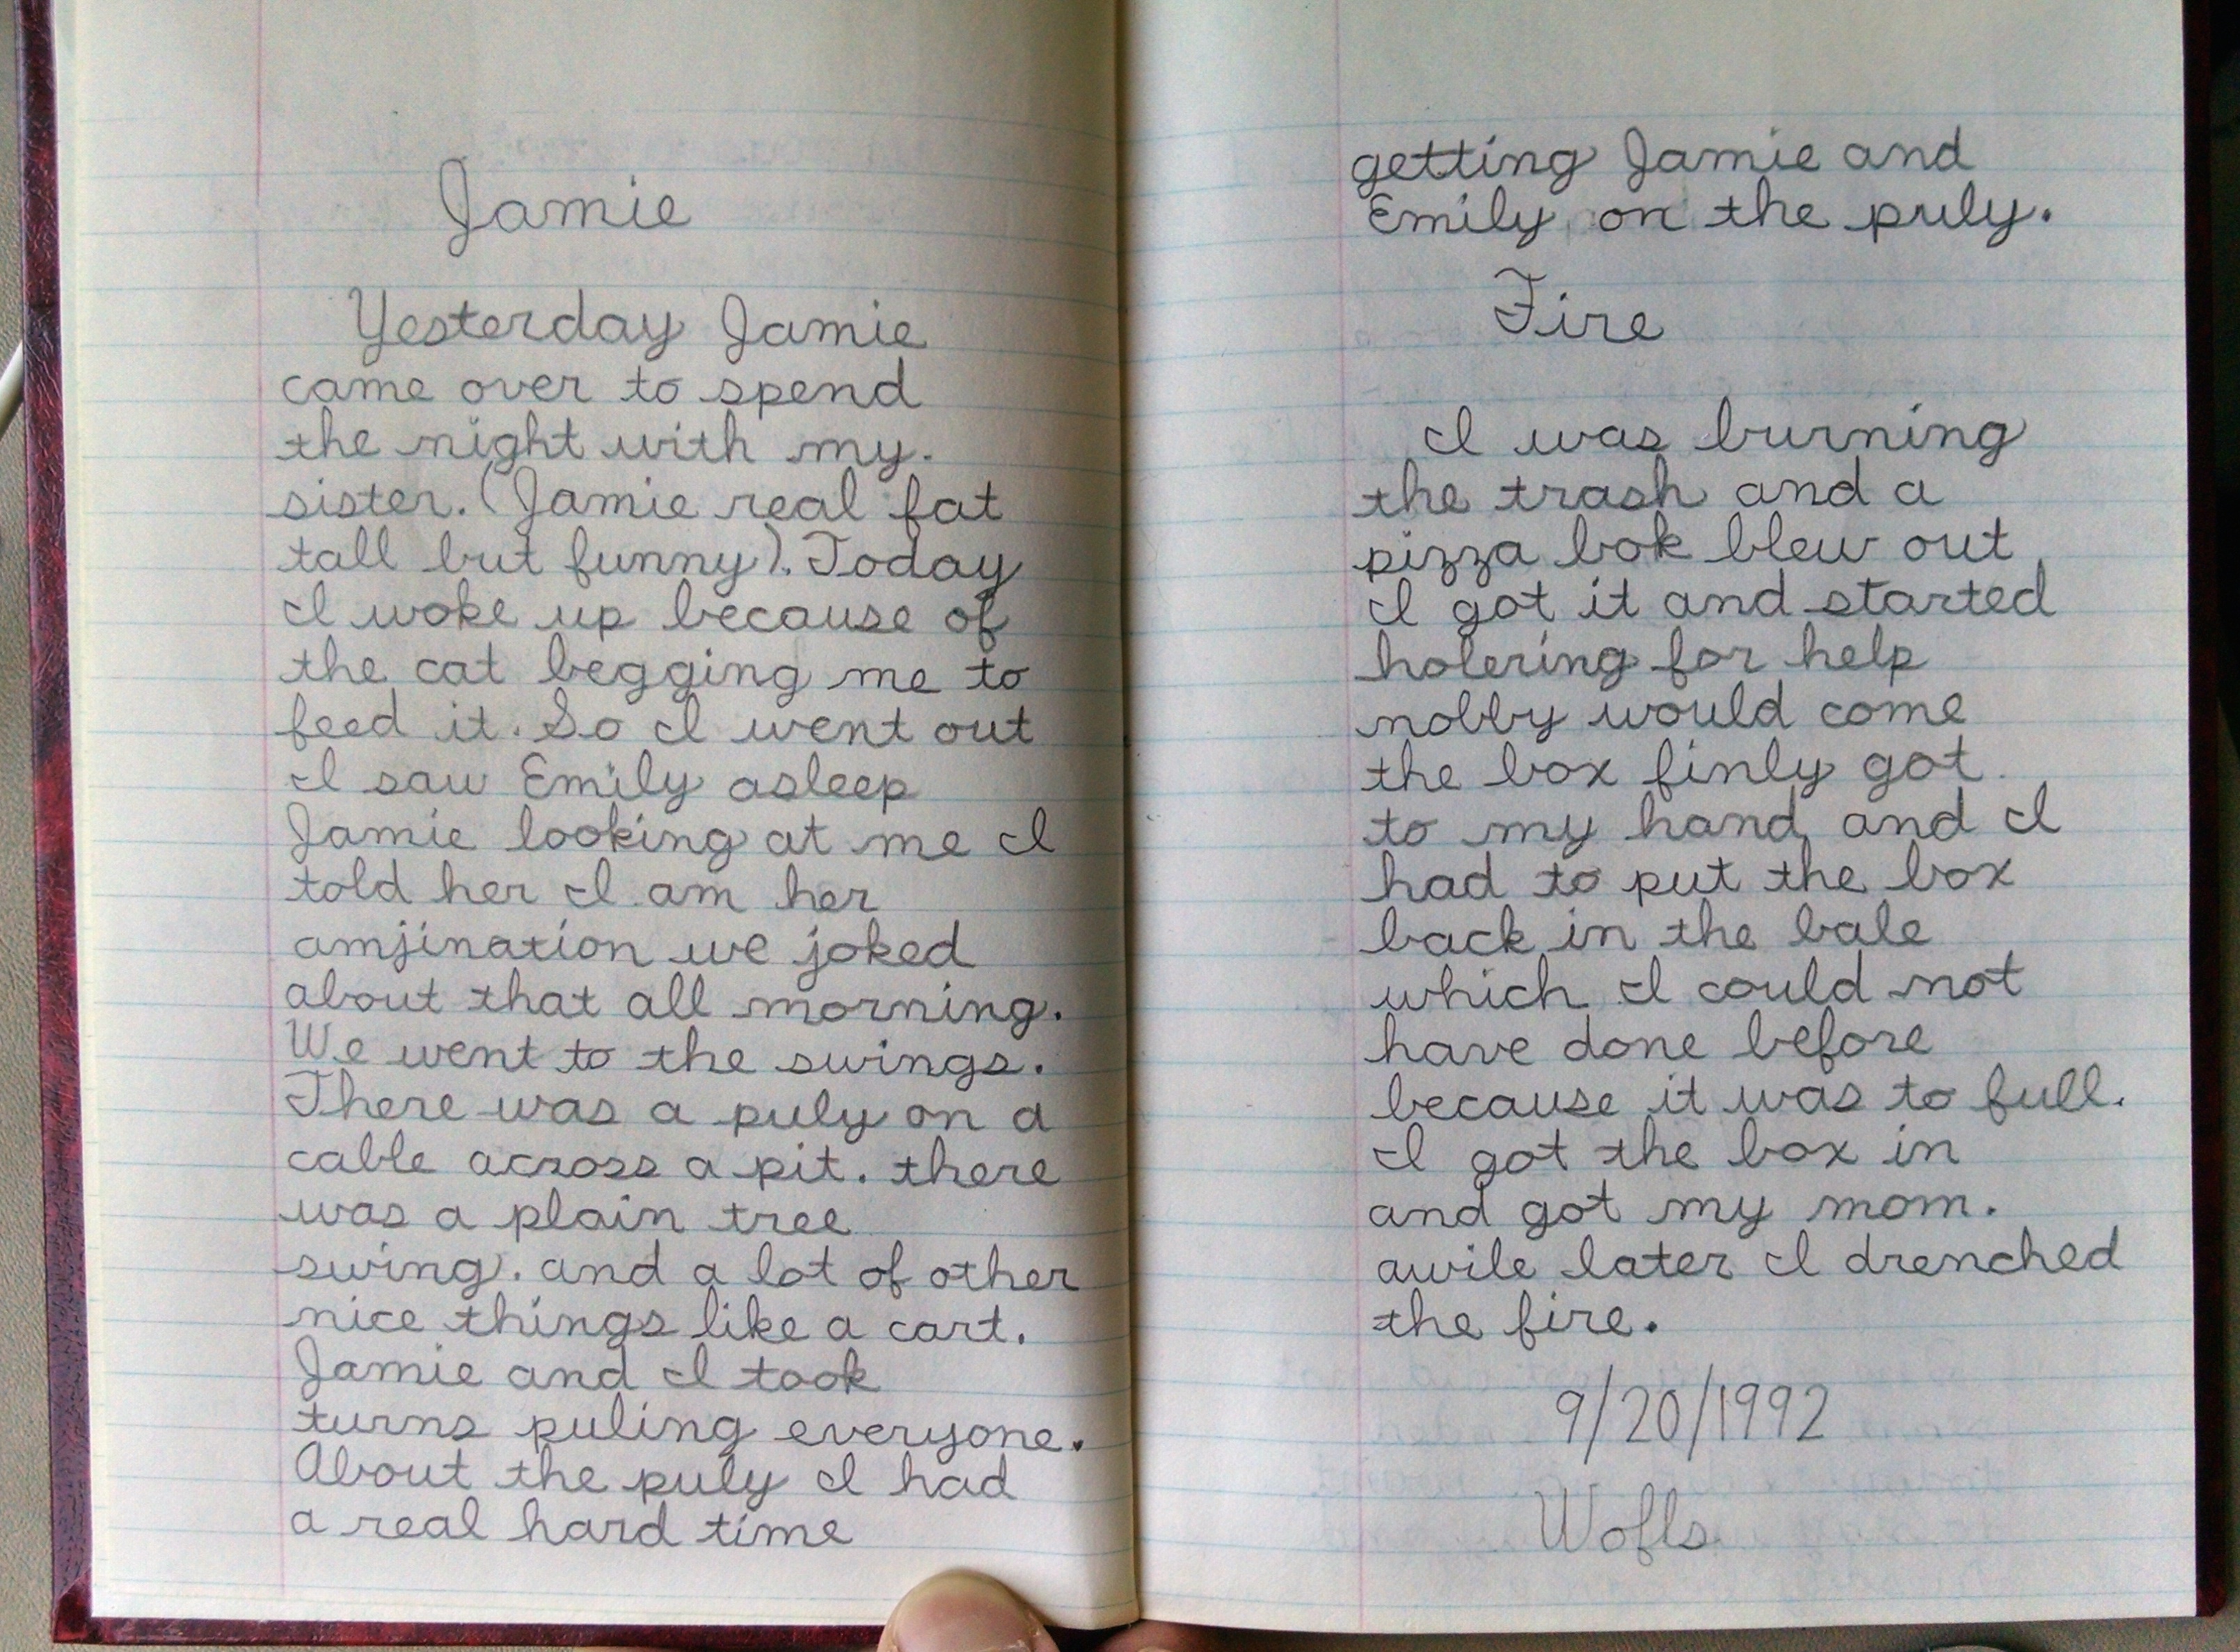 Jamie
Yesterday Jamie
came over to spend
the night with my.
sister. (Jamie real fat
tall but funny). Today
I woke up because of
the cat begging me to
feed it. So I went out
I saw Emily asleep
Jamie looking at me I
told her I am her
amjination we joked
about that all morning.
We went to the swings.
There was a puly on a
cable across a pit. there
was a plain tree
swing. and a lot of other
nice things like a cart.
Jamie and I took
turns puling everyone.
About the puly I had
a real hard time
getting Jamie and
Emily on the puly.
Fire
I was burning
the trash and a
pizza bok blew out
I got it and started
holering for help
nobby would come
the box finly got
to my hand and I
had to put the box
back in the bale
which I could not
have done before
because it was to full.
I got the box in
and got my mom.
awile later I drenched
the fire.
9/20/1992
Wofls